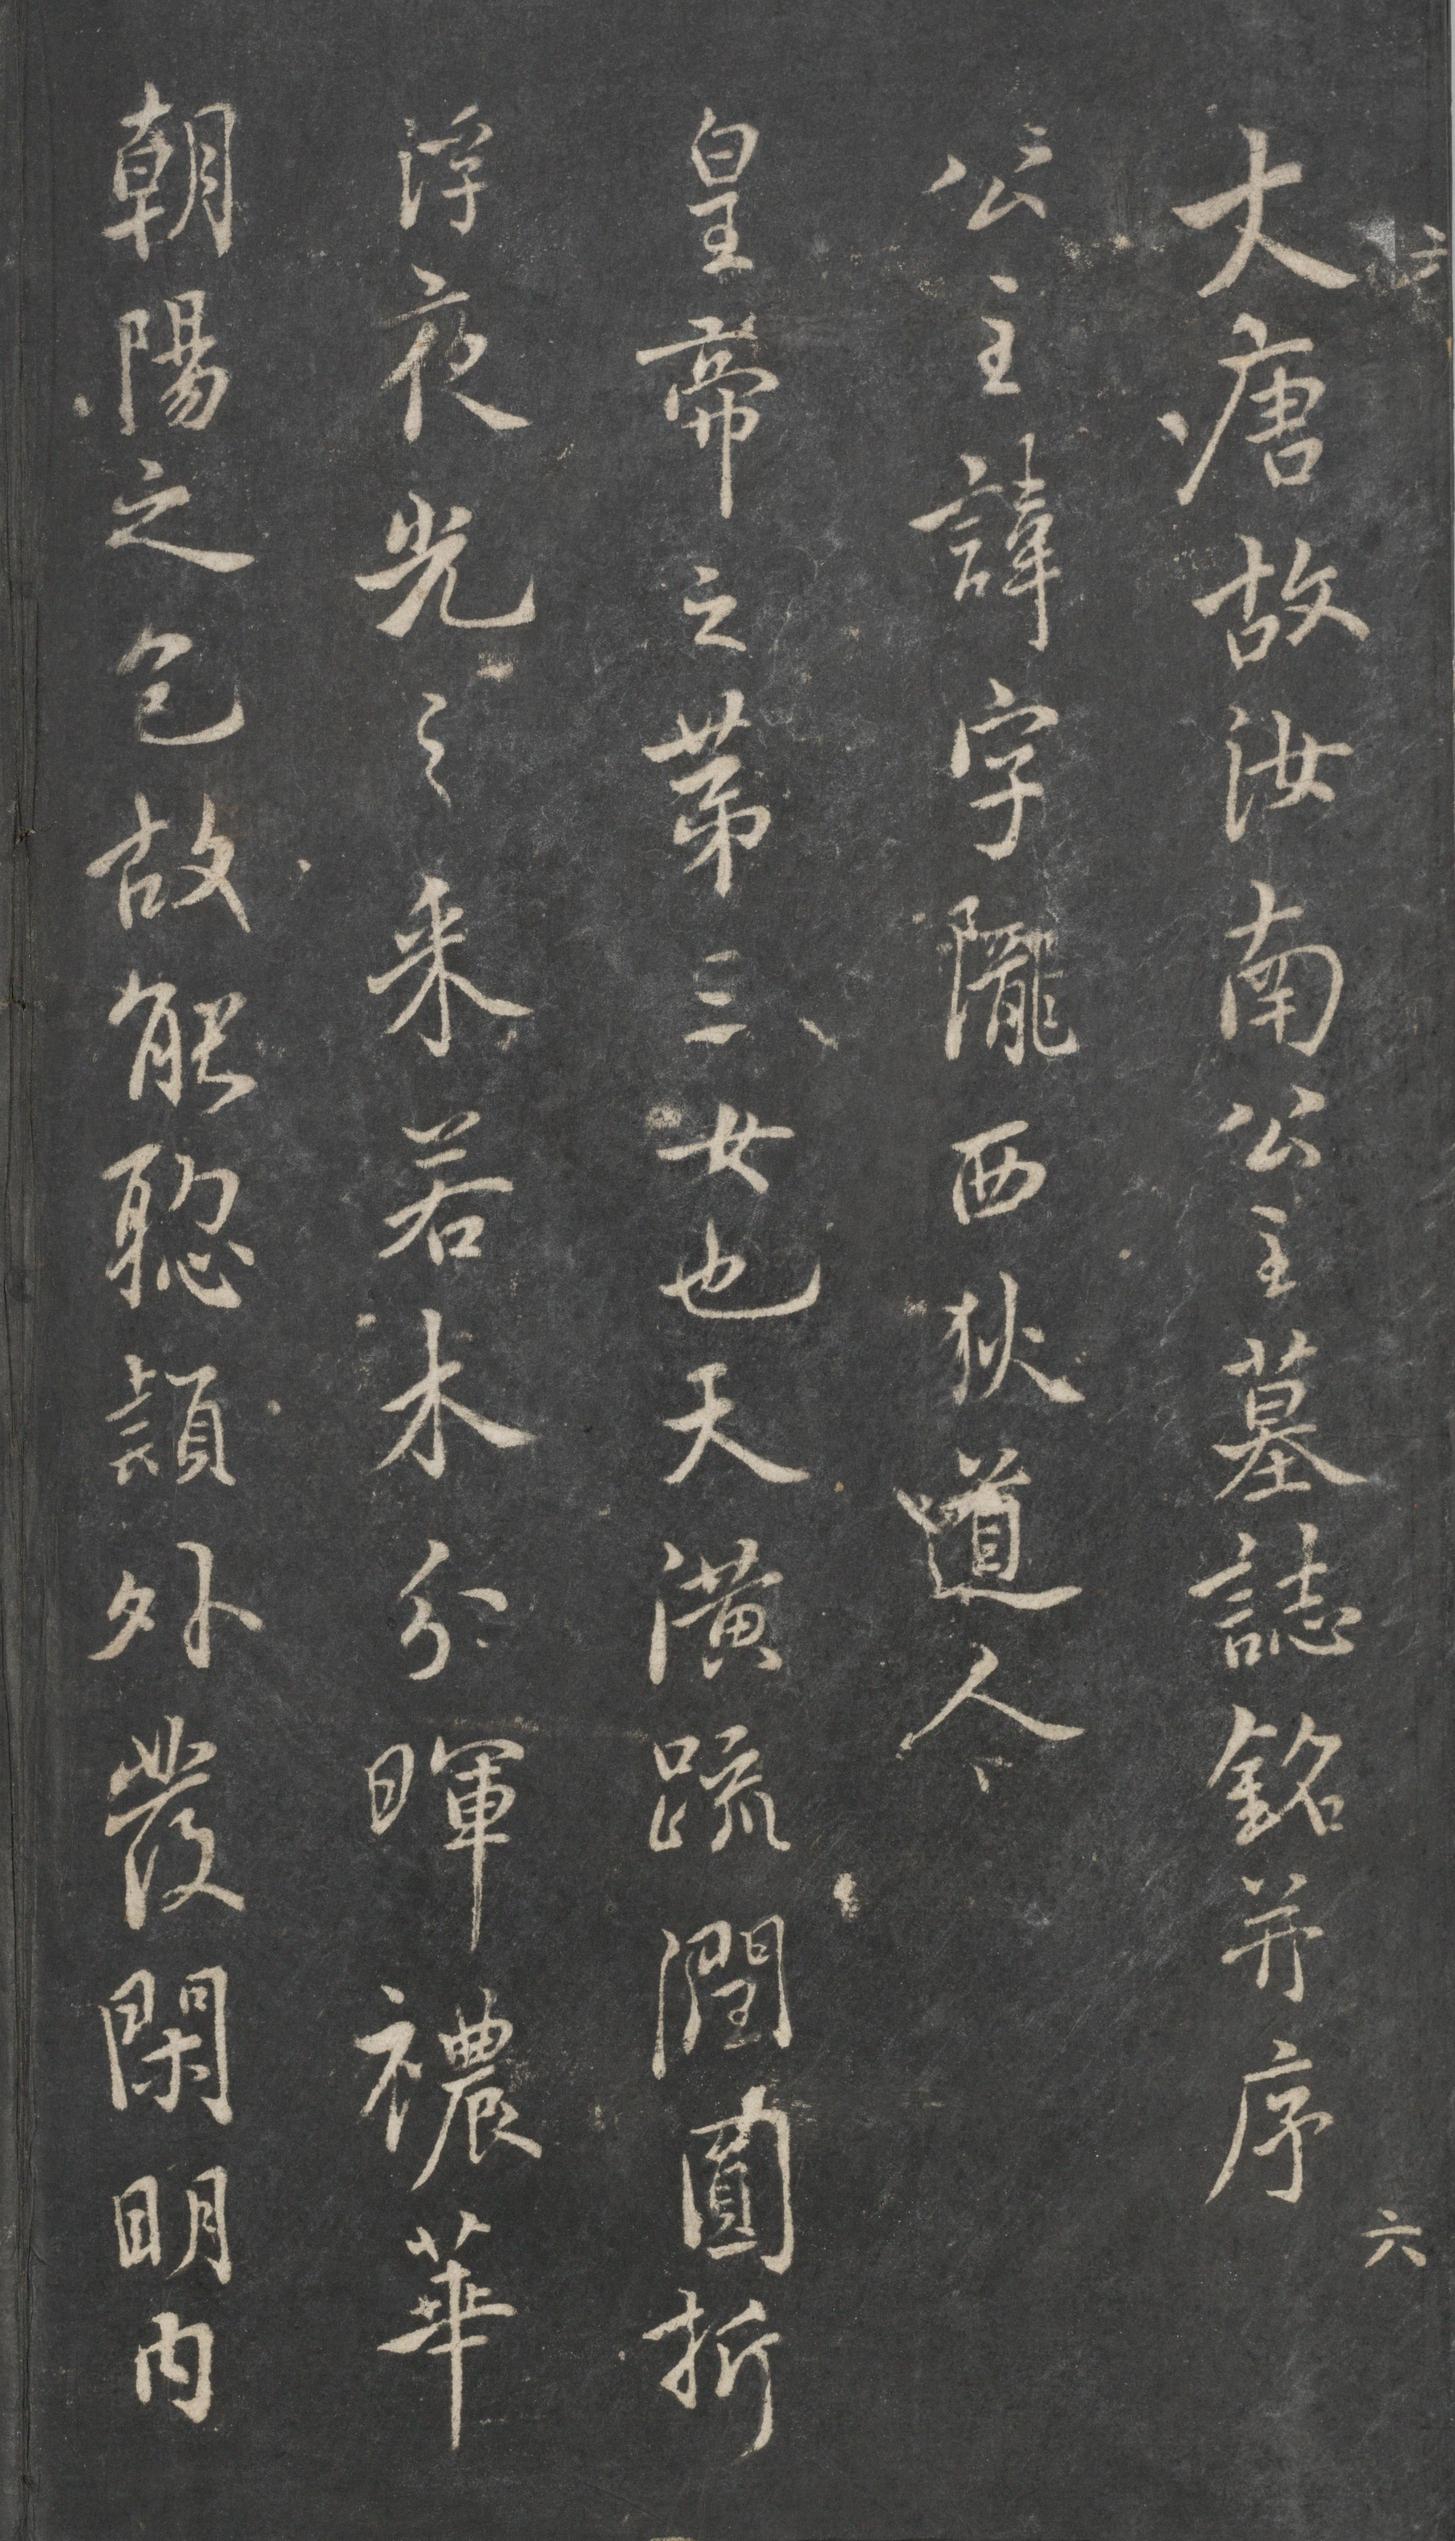 大唐故汝南公主墓誌銘并序
公主諱字隴西狄道人
皇帝之第三女也天潢疏潤圓折
浮夜光之采若木分暉穠華
朝陽之色故能聰穎外發閑明内
六